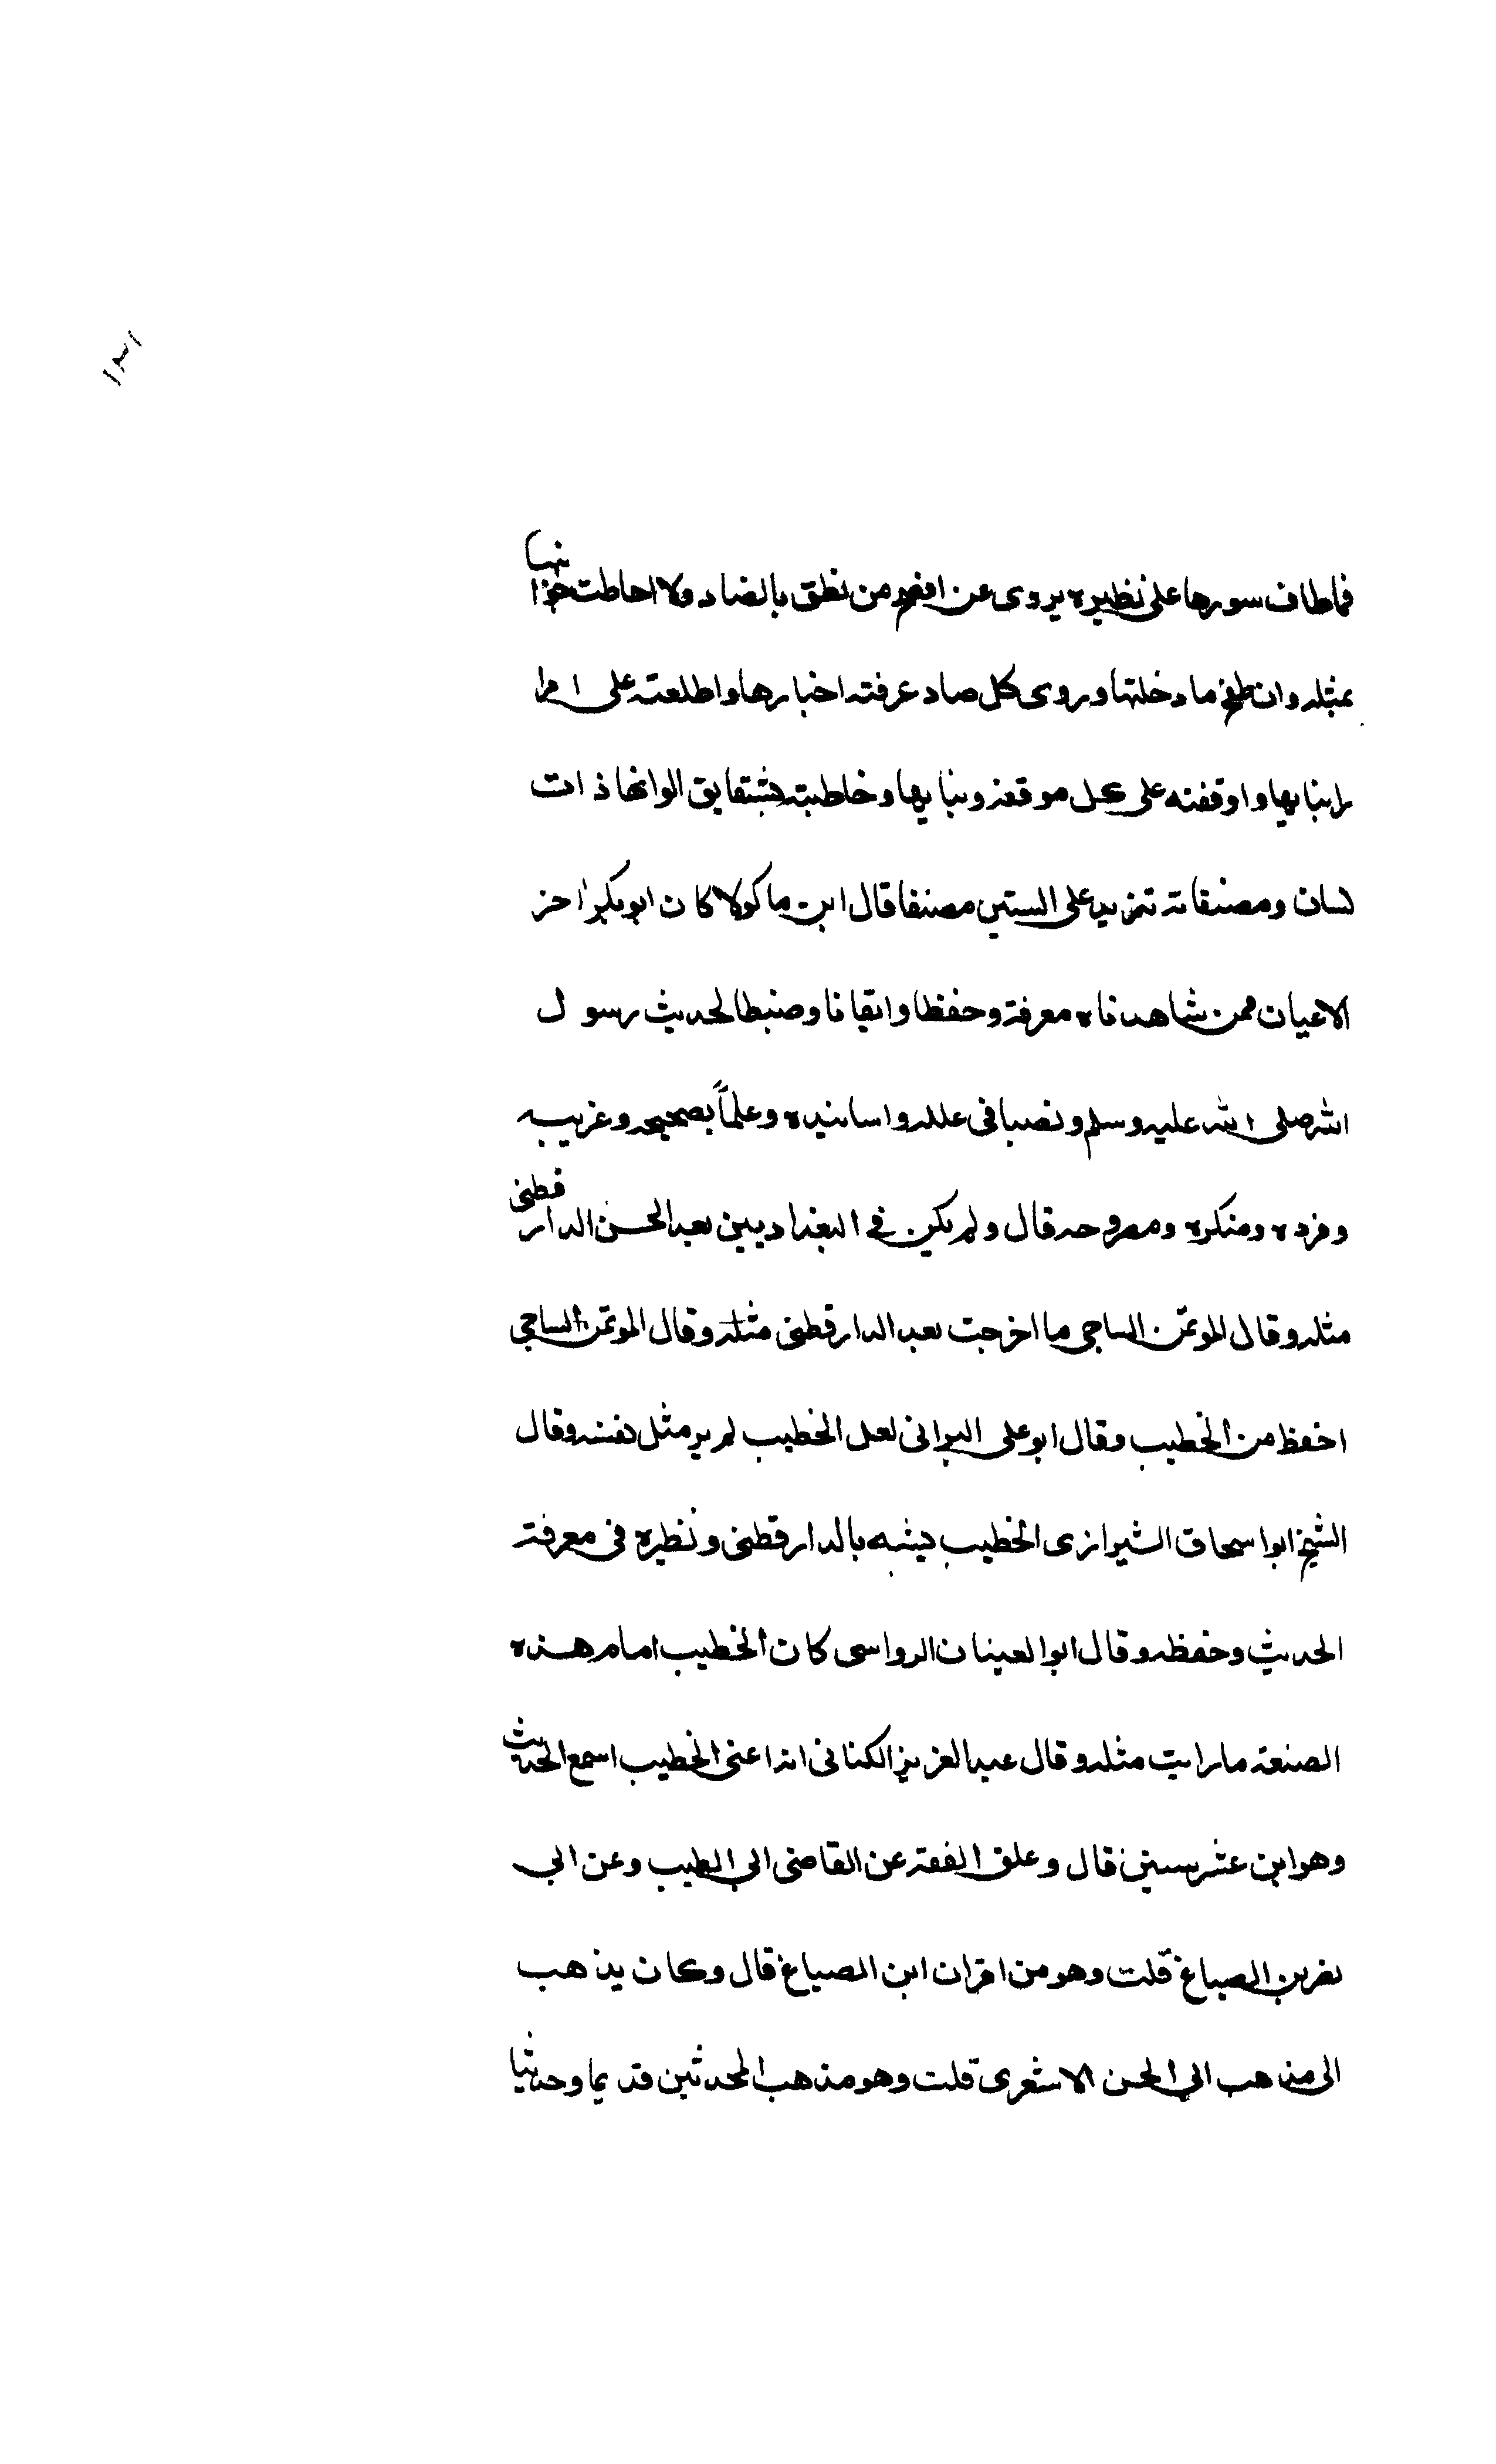 ١٣١
فماطاف سورها على نظيره يروى عن افصح من نطق بالضاد ولا احاطت جوانبها
بمثله وان طفح ما دخلتها وروى كل صاد عرفته اخبارها واطلعته على امرا
رابنايها واوقفته على كل موقعه وبنايها وخاطبته شقايق الوانها ذات
لسان ومصنفاته تزيد على الستين مصنفا قال ابن ماكولا كان ابو بكر اخر
الاعيان ممن شاهدناه معرفة وحفظا واتقانا وضبطا لحديث رسول
الله صلى الله عليه وسلم ونصبا فى علله واسانيده وعلماً بصحيحه وغريبه
وفرده ومنكره ومطروحه قال ولم يكن في البغداديين بعد الحسن الدارقطنى
مثله وقال الموتمن الساجى ما اخرجت بعد الدارقطنى مثله وقال الموتمن الساجي
احفظ من الخطيب وقال ابو على البرانى لعل الخطيب لم ير مثل نفسه وقال
الشيخ ابو اسحاق الشيرازى الخطيب يشبه بالدارقطنى ونظيره فى معرفة
الحديث وحفظه وقال ابو العينان الرواسى كان الخطيب امام هذه
الصنعة ما رايت مثله وقال عبد العزيز الكنانى انه اعنى الخطيب اسمع الحديث
وهو ابن عشر سنين قال وعلق الفقه عن القاضى ابي الطيب وعن ابي
نصر بن الصباغ قلت وهو من اقران ابن الصباغ قال وكان يذهب
الى مذهب ابي الحسن الاشعرى قلت وهو مذهب المحدثين قديما وحديثا